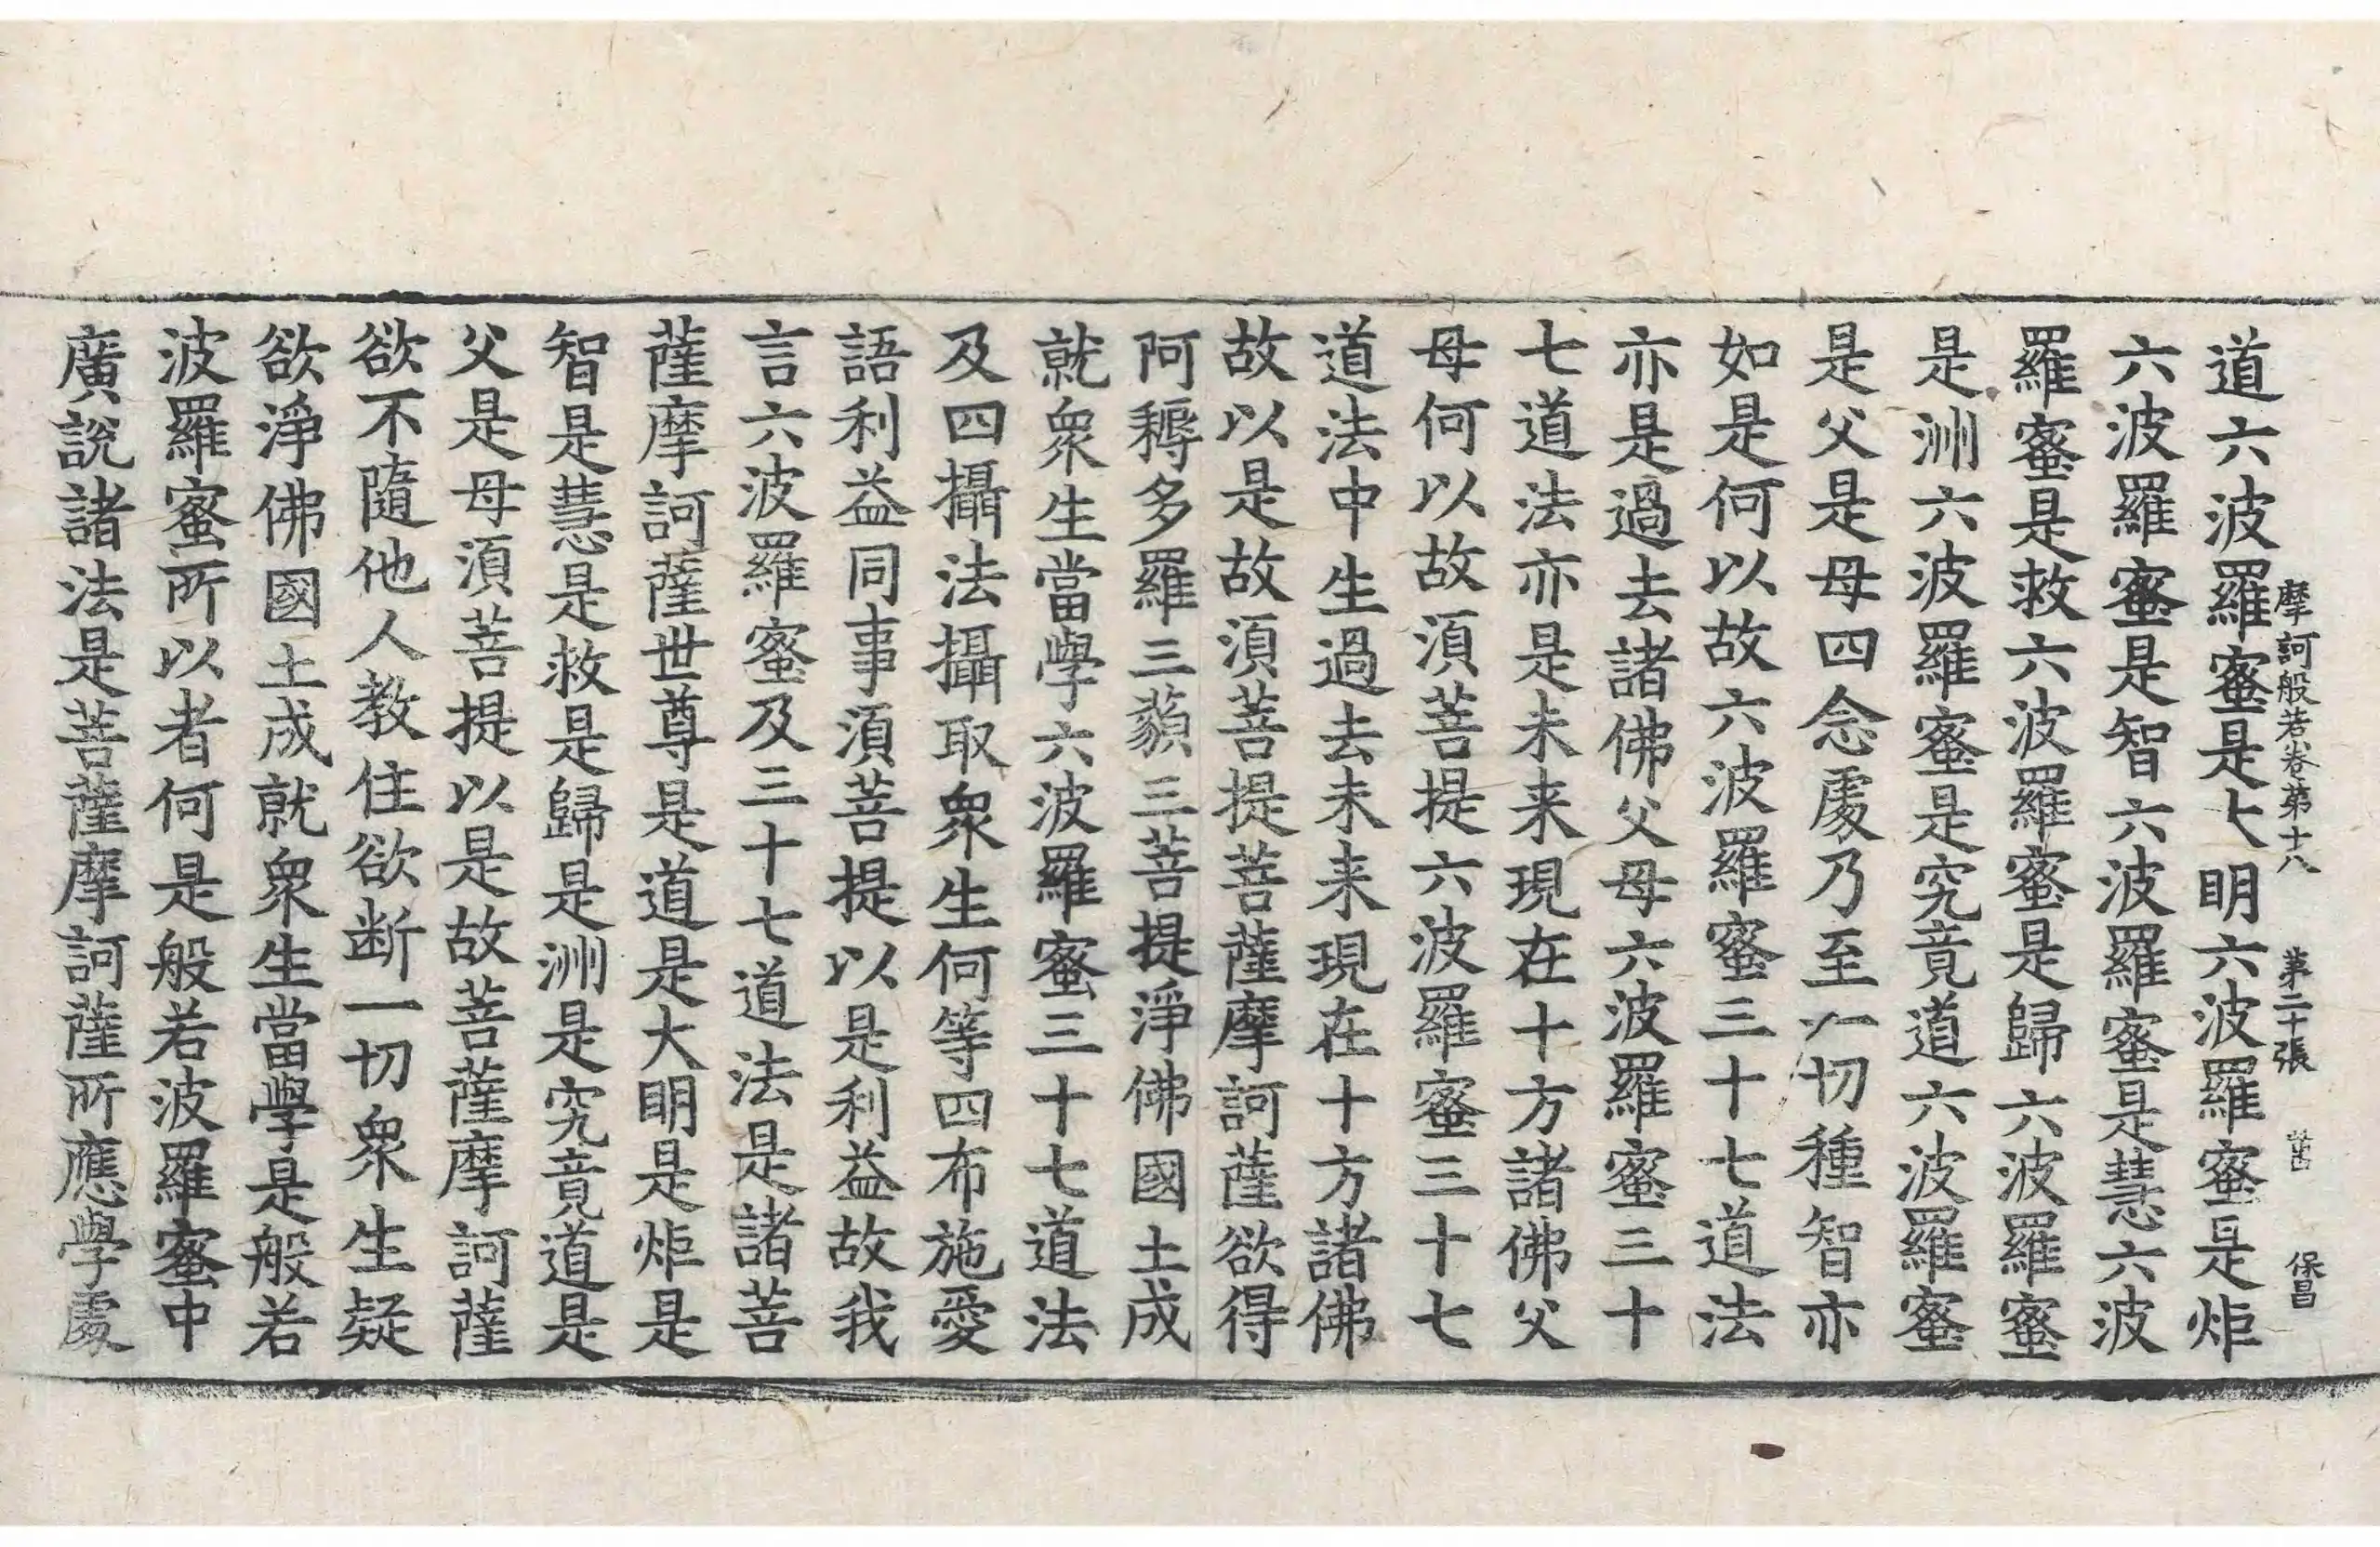 摩訶般若卷第十八　第二十張　　保昌
道六波羅蜜是大明六波羅蜜是炬
六波羅蜜是智六波羅蜜是慧六波
羅蜜是救六波羅蜜是歸六波羅蜜
是洲六波羅蜜是究竟道六波羅蜜
是父是母四念處乃至一切種智亦
如是何以故六波羅蜜三十七道法
亦是過去諸佛父母六波羅蜜三十
七道法亦是未来現在十方諸佛父
母何以故須菩提六波羅蜜三十七
道法中生過去未来現在十方諸佛
故以是故須菩提菩薩摩訶薩欲得
阿耨多羅三藐三菩提淨佛國土成
就衆生當學六波羅蜜三十七道法
及四攝法攝取衆生何等四布施愛
語利益同事須菩提以是利益故我
言六波羅蜜及三十七道法是諸菩
薩摩訶薩世尊是道是大明是炬是
智是慧是救是歸是洲是究竟道是
父是母須菩提以是故菩薩摩訶薩
欲不隨他人教住欲断一切衆生疑
欲淨佛國土成就衆生當學是般若
波羅蜜所以者何是般若波羅蜜中
廣說諸法是菩薩摩訶薩所應學處